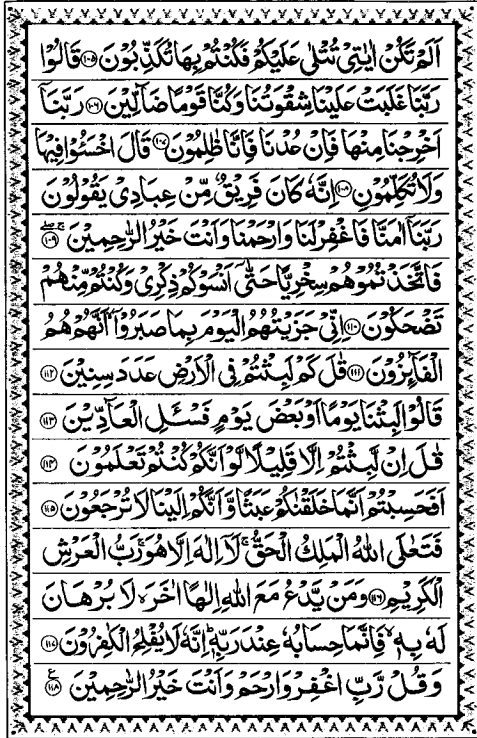 اَلَمْ تَكُنْ اٰیٰتِیْ تُتْلٰی عَلَیْكُمْ فَكُنْتُمْ بِهَا تُكَذِّبُوْنَ ﴿۱۰۵﴾ قَالُوْا
رَبَّنَا غَلَبَتْ عَلَیْنَا شِقْوَتُنَا وَكُنَّا قَوْمًا ضَآلِّیْنَ ﴿۱۰۶﴾ رَبَّنَاۤ
اَخْرِجْنَا مِنْهَا فَاِنْ عُدْنَا فَاِنَّا ظٰلِمُوْنَ ﴿۱۰۷﴾ قَالَ اخْسَـُٔوْا فِیْهَا
وَلَا تُكَلِّمُوْنِ ﴿۱۰۸﴾ اِنَّهٗ كَانَ فَرِیْقٌ مِّنْ عِبَادِیْ یَقُوْلُوْنَ
رَبَّنَاۤ اٰمَنَّا فَاغْفِرْ لَنَا وَارْحَمْنَا وَاَنْتَ خَیْرُ الرّٰحِمِیْنَ ﴿۱۰۹﴾
فَاتَّخَذْتُمُوْهُمْ سِخْرِیًّا حَتّٰۤی اَنْسَوْكُمْ ذِكْرِیْ وَكُنْتُمْ مِّنْهُمْ
تَضْحَكُوْنَ ﴿۱۱۰﴾ اِنِّیْ جَزَیْتُهُمُ الْیَوْمَ بِمَا صَبَرُوْۤا اَنَّهُمْ هُمُ
الْفَآىِٕزُوْنَ ﴿۱۱۱﴾ قٰلَ كَمْ لَبِثْتُمْ فِی الْاَرْضِ عَدَدَ سِنِیْنَ ﴿۱۱۲﴾
قَالُوْا لَبِثْنَا یَوْمًا اَوْ بَعْضَ یَوْمٍ فَسْـَٔلِ الْعَآدِّیْنَ ﴿۱۱۳﴾
قٰلَ اِنْ لَّبِثْتُمْ اِلَّا قَلِیْلًا لَّوْ اَنَّكُمْ كُنْتُمْ تَعْلَمُوْنَ ﴿۱۱۴﴾
اَفَحَسِبْتُمْ اَنَّمَا خَلَقْنٰكُمْ عَبَثًا وَّاَنَّكُمْ اِلَیْنَا لَا تُرْجَعُوْنَ ﴿۱۱۵﴾
فَتَعٰلَی اللّٰهُ الْمَلِكُ الْحَقُّ ۚ لَاۤ اِلٰهَ اِلَّا هُوَ ۚ رَبُّ الْعَرْشِ
الْكَرِیْمِ ﴿۱۱۶﴾ وَمَنْ یَّدْعُ مَعَ اللّٰهِ اِلٰهًا اٰخَرَ ۙ لَا بُرْهَانَ
لَهٗ بِهٖ ۙ فَاِنَّمَا حِسَابُهٗ عِنْدَ رَبِّهٖ ؕ اِنَّهٗ لَا یُفْلِحُ الْكٰفِرُوْنَ ﴿۱۱۷﴾
وَقُلْ رَّبِّ اغْفِرْ وَارْحَمْ وَاَنْتَ خَیْرُ الرّٰحِمِیْنَ ﴿۱۱۸﴾ ع